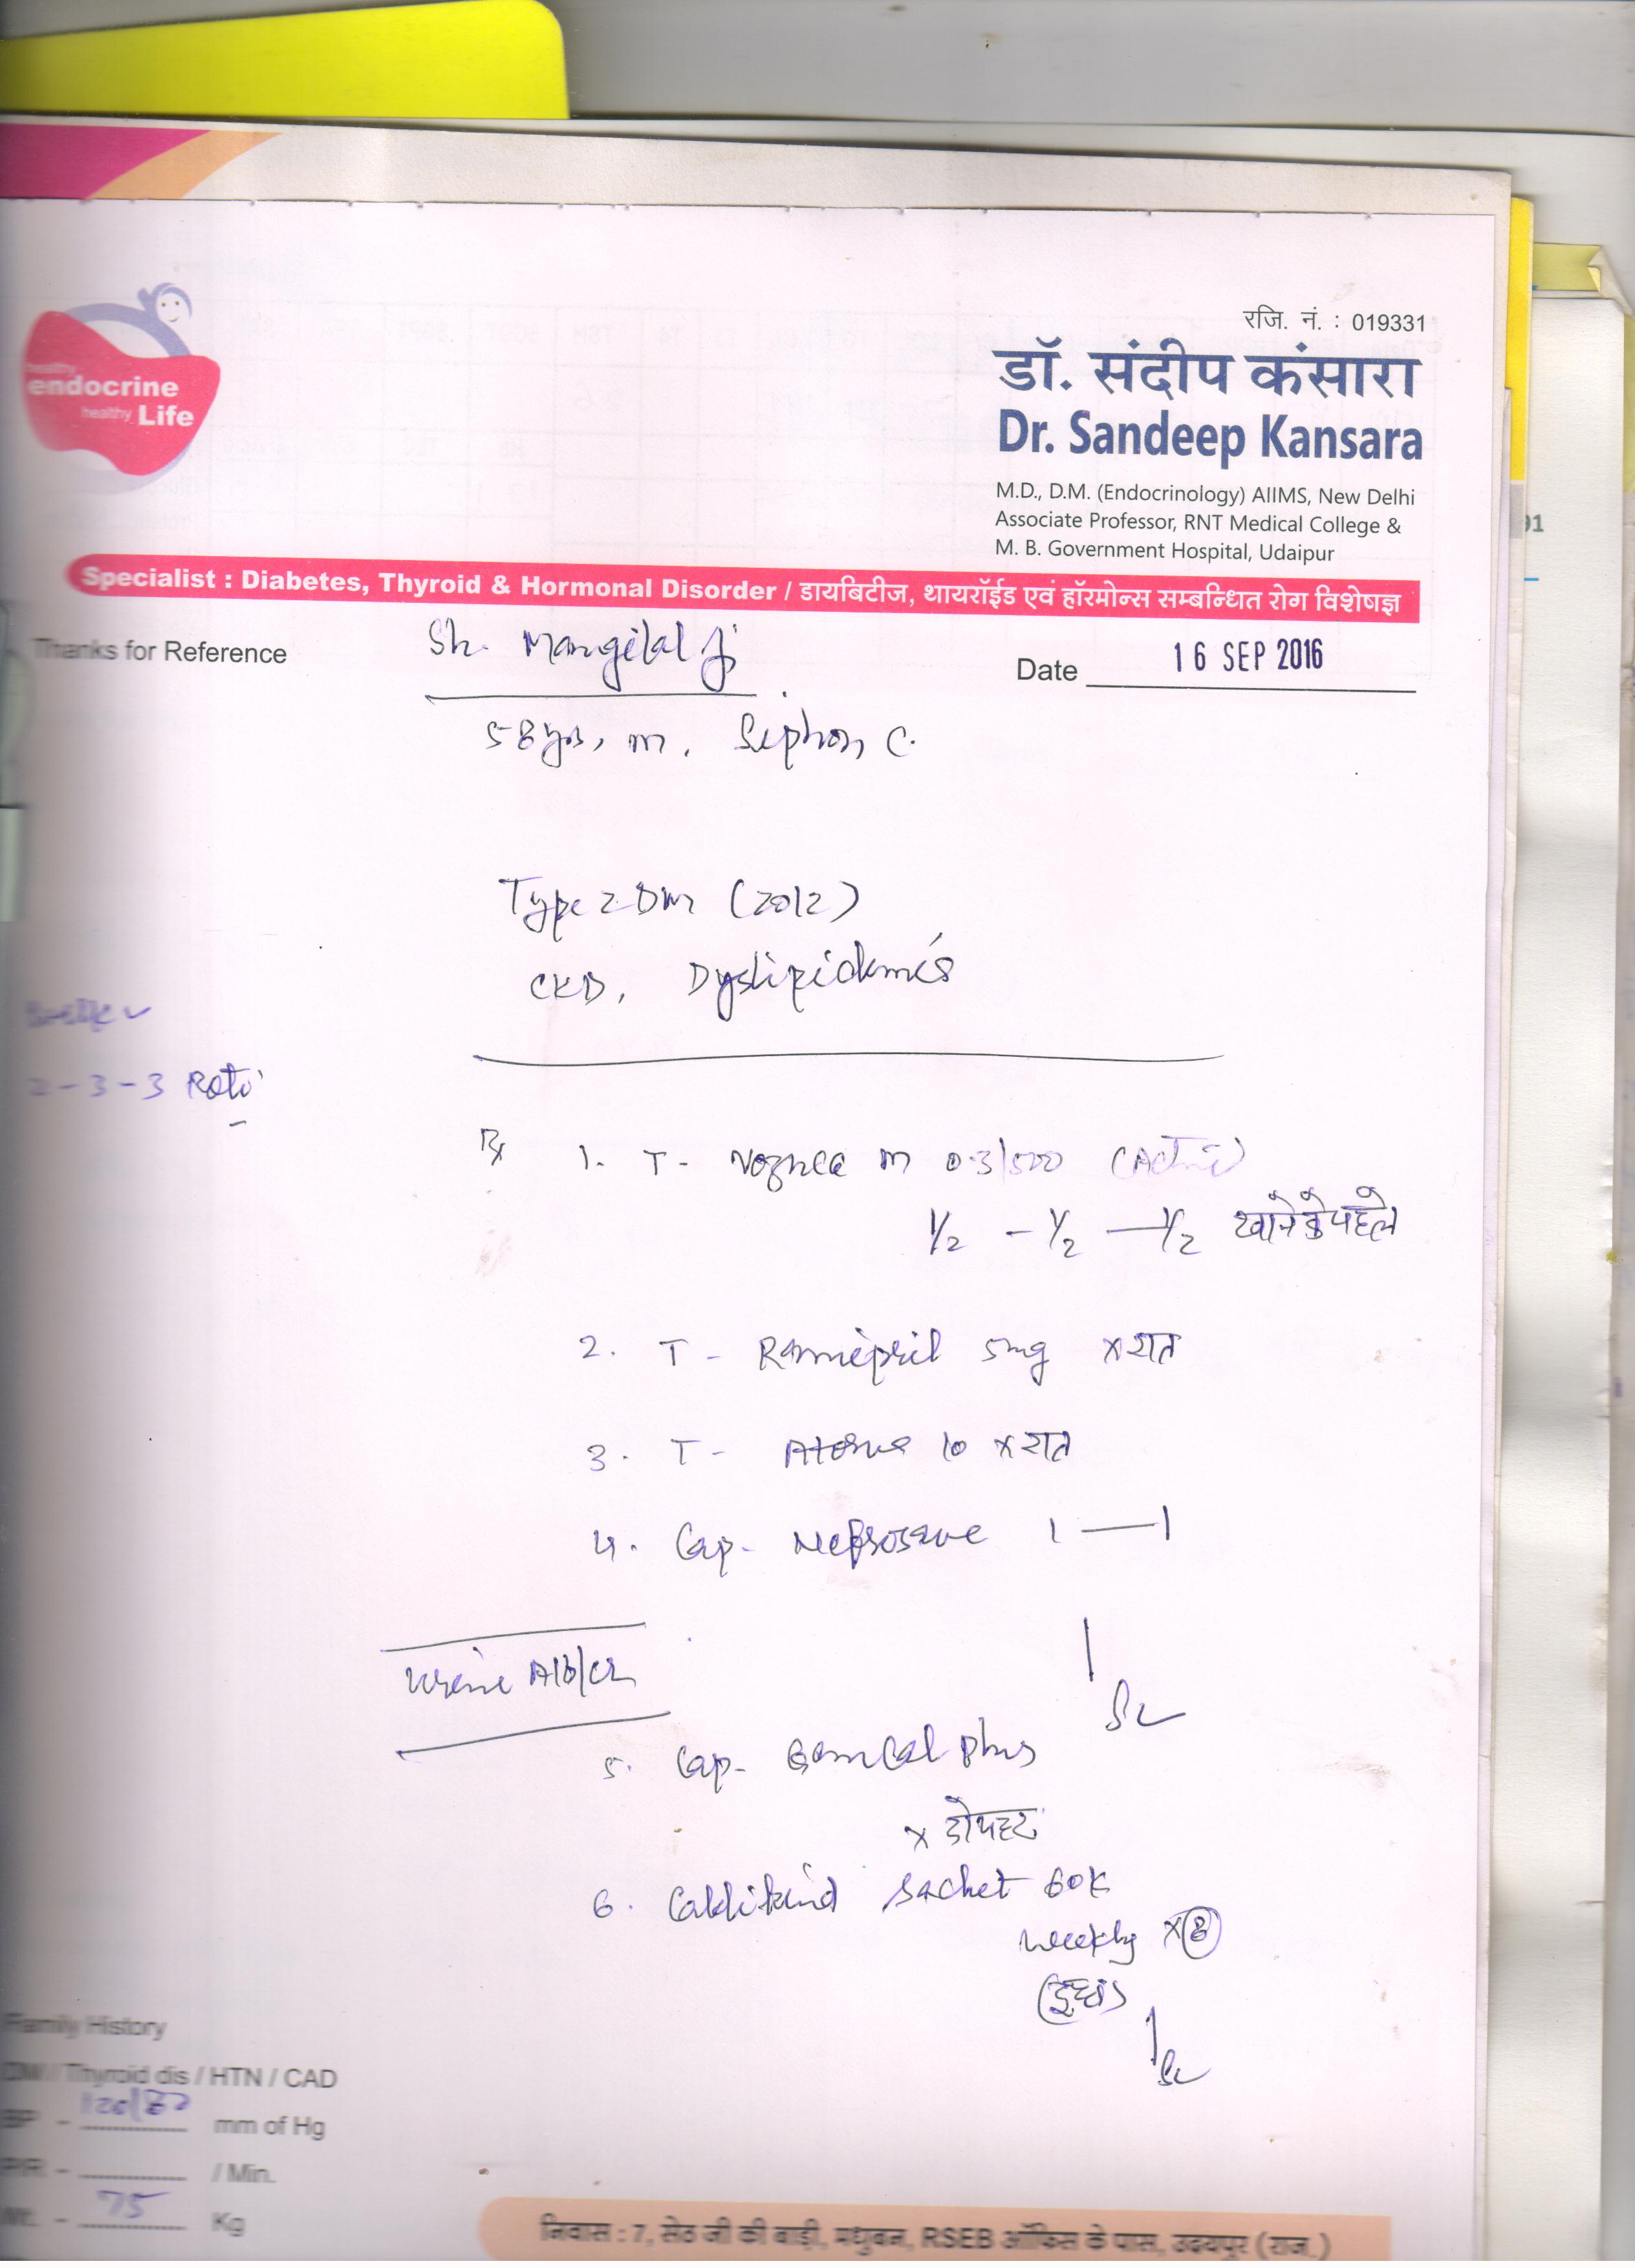 रजि. नं. : 019331
डॉ. संदीप कंसारा
Dr. Sandeep Kansara
M.D., D.M. (Endocrinology) AIIMS, New Delhi
Associate Professor, RNT Medical College &
M. B. Government Hospital, Udaipur
healthy
endocrine
healthy Life
Specialist : Diabetes, Thyroid & Hormonal Disorder / डायबिटीज, थायरॉईड एवं हॉरमोन्स सम्बन्धित रोग विशेषज्ञ
Thanks for Reference
Sh. Mangilal Ji
Date 16 SEP 2016
58 yrs, m, Siphon C.
Type 2 Dm (2012)
CKD, Dyslipidemia
2-3-3 Roti
Rx 1. T- m 0.3/500
1/2 - 1/2 - 1/2 खाने के पहले
2. T - Ramipril 5mg x रात
3. T - Atorva 10 x रात
4. Cap- Nefrosave 1 — 1
Urine Alb/Cr
5. Cap- Gemcal Plus
x दोपहर
6. Caldikind sachet 60K
weekly x 8
(दूध)
Family History
DM / Thyroid dis / HTN / CAD
BP - 120/80 mm of Hg
P/R - / Min.
Wt. - 75 Kg
निवास : 7, सेठ जी की बाड़ी, मधुबन, RSEB ऑफिस के पास, उदयपुर (राज.)